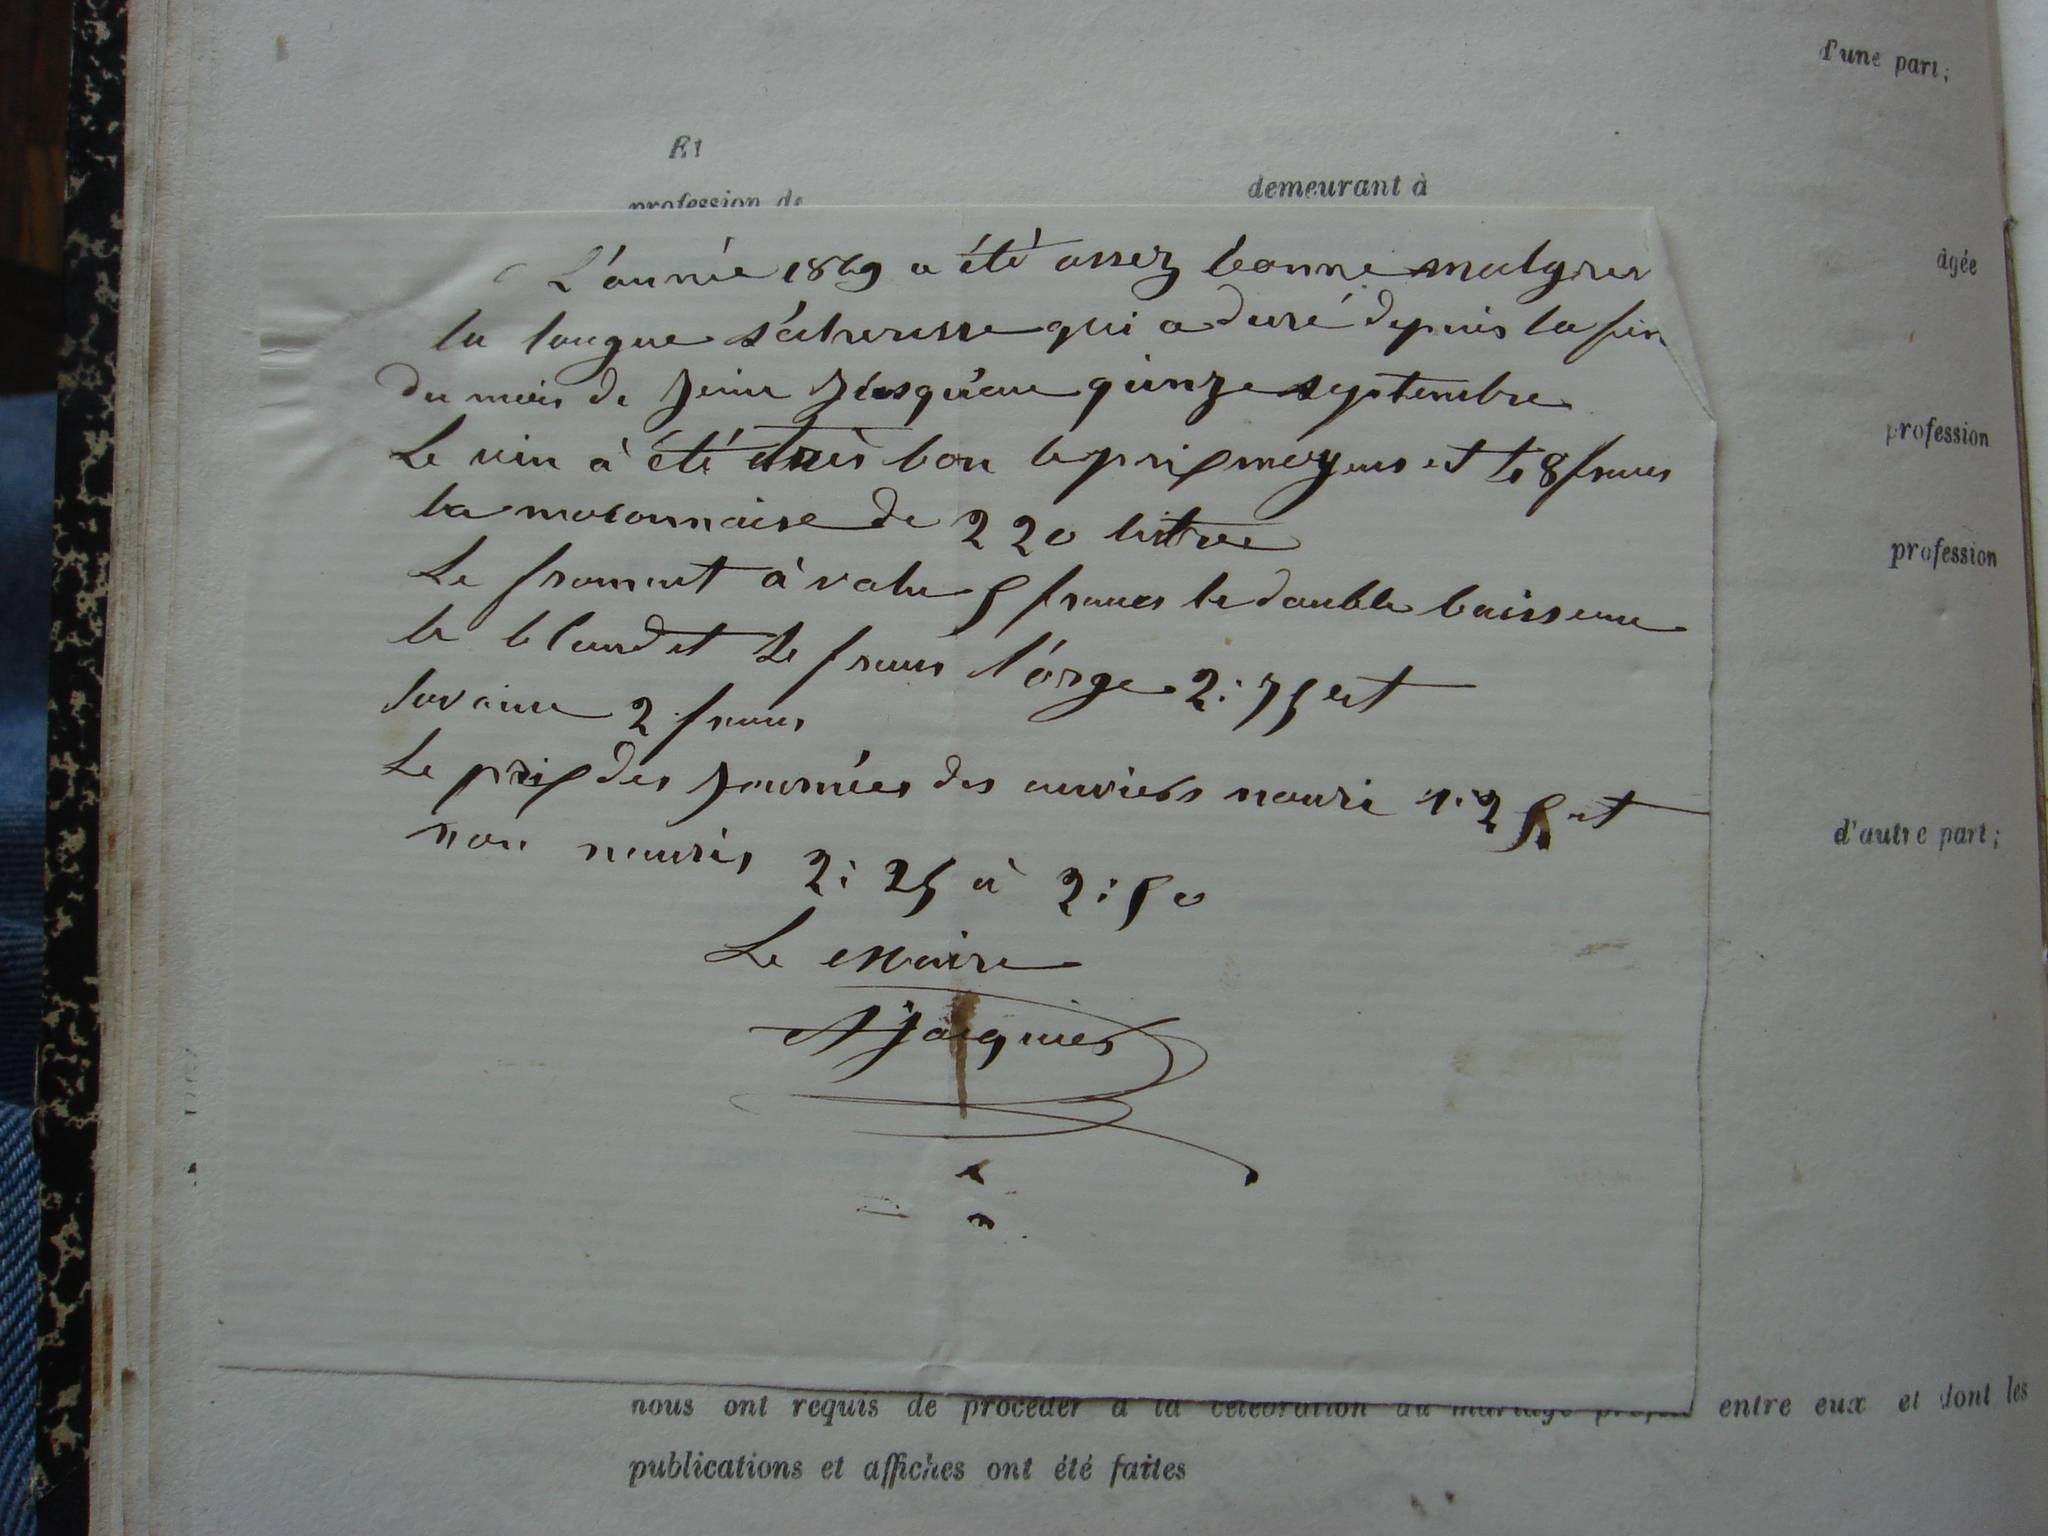 d'une part;
Et
profession de demeurant à
âgée
L'année 1869 a été assez bonne malgrer
la longue sécheresse qui a duré depuis la fin
du mois de juin jusqu'au quinze septembre
profession
Le vin à été très bon le prix moyens et francs
la maconnaise de 220 litre
profession
Le froment à valu 5 francs le double
le francs l'orge 2:75 et
lavoine 2 francs
Le prix des journées des ouviers nouri 1:25 et
d'autre part;
non nouris 2:25 à 2:50
Le Maire
Jacquier
nous ont requis de procéder à la célébration du mariage entre eux et dont les
publications et affiches ont été faites